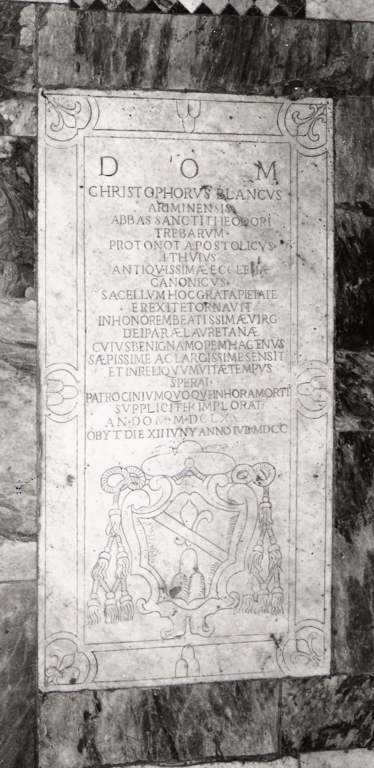 D O M
CHRISTOPHORVS BLANCVS
ARIMINENSIS
ABBAS SANCTI THEODORI
TREBARVM
PROTONOT APOSTOLICVS
ET HVIVS
ANTIQVISSIMÆ ECCLESIÆ
CANONICVS
SACELLVM HOC GRATA PIETATE
EREXIT ET ORNAVIT
IN HONOREM BEATISSIMÆ VIRG
DEIPARÆ LAVRETANÆ
CVIVS BENIGNAM OPEM HACTENVS
SÆPISSIME AC LARGISSIME SENSIT
ET IN RELIQVVM VITÆ TEMPVS
SPERAT
PATROCINIVM QVOQVE IN HORA MORTI
SVPPLICITER IMPLORAT
AN DOM M DCLXX
OBYT DIE XII IVNY ANNO IVB MDCC